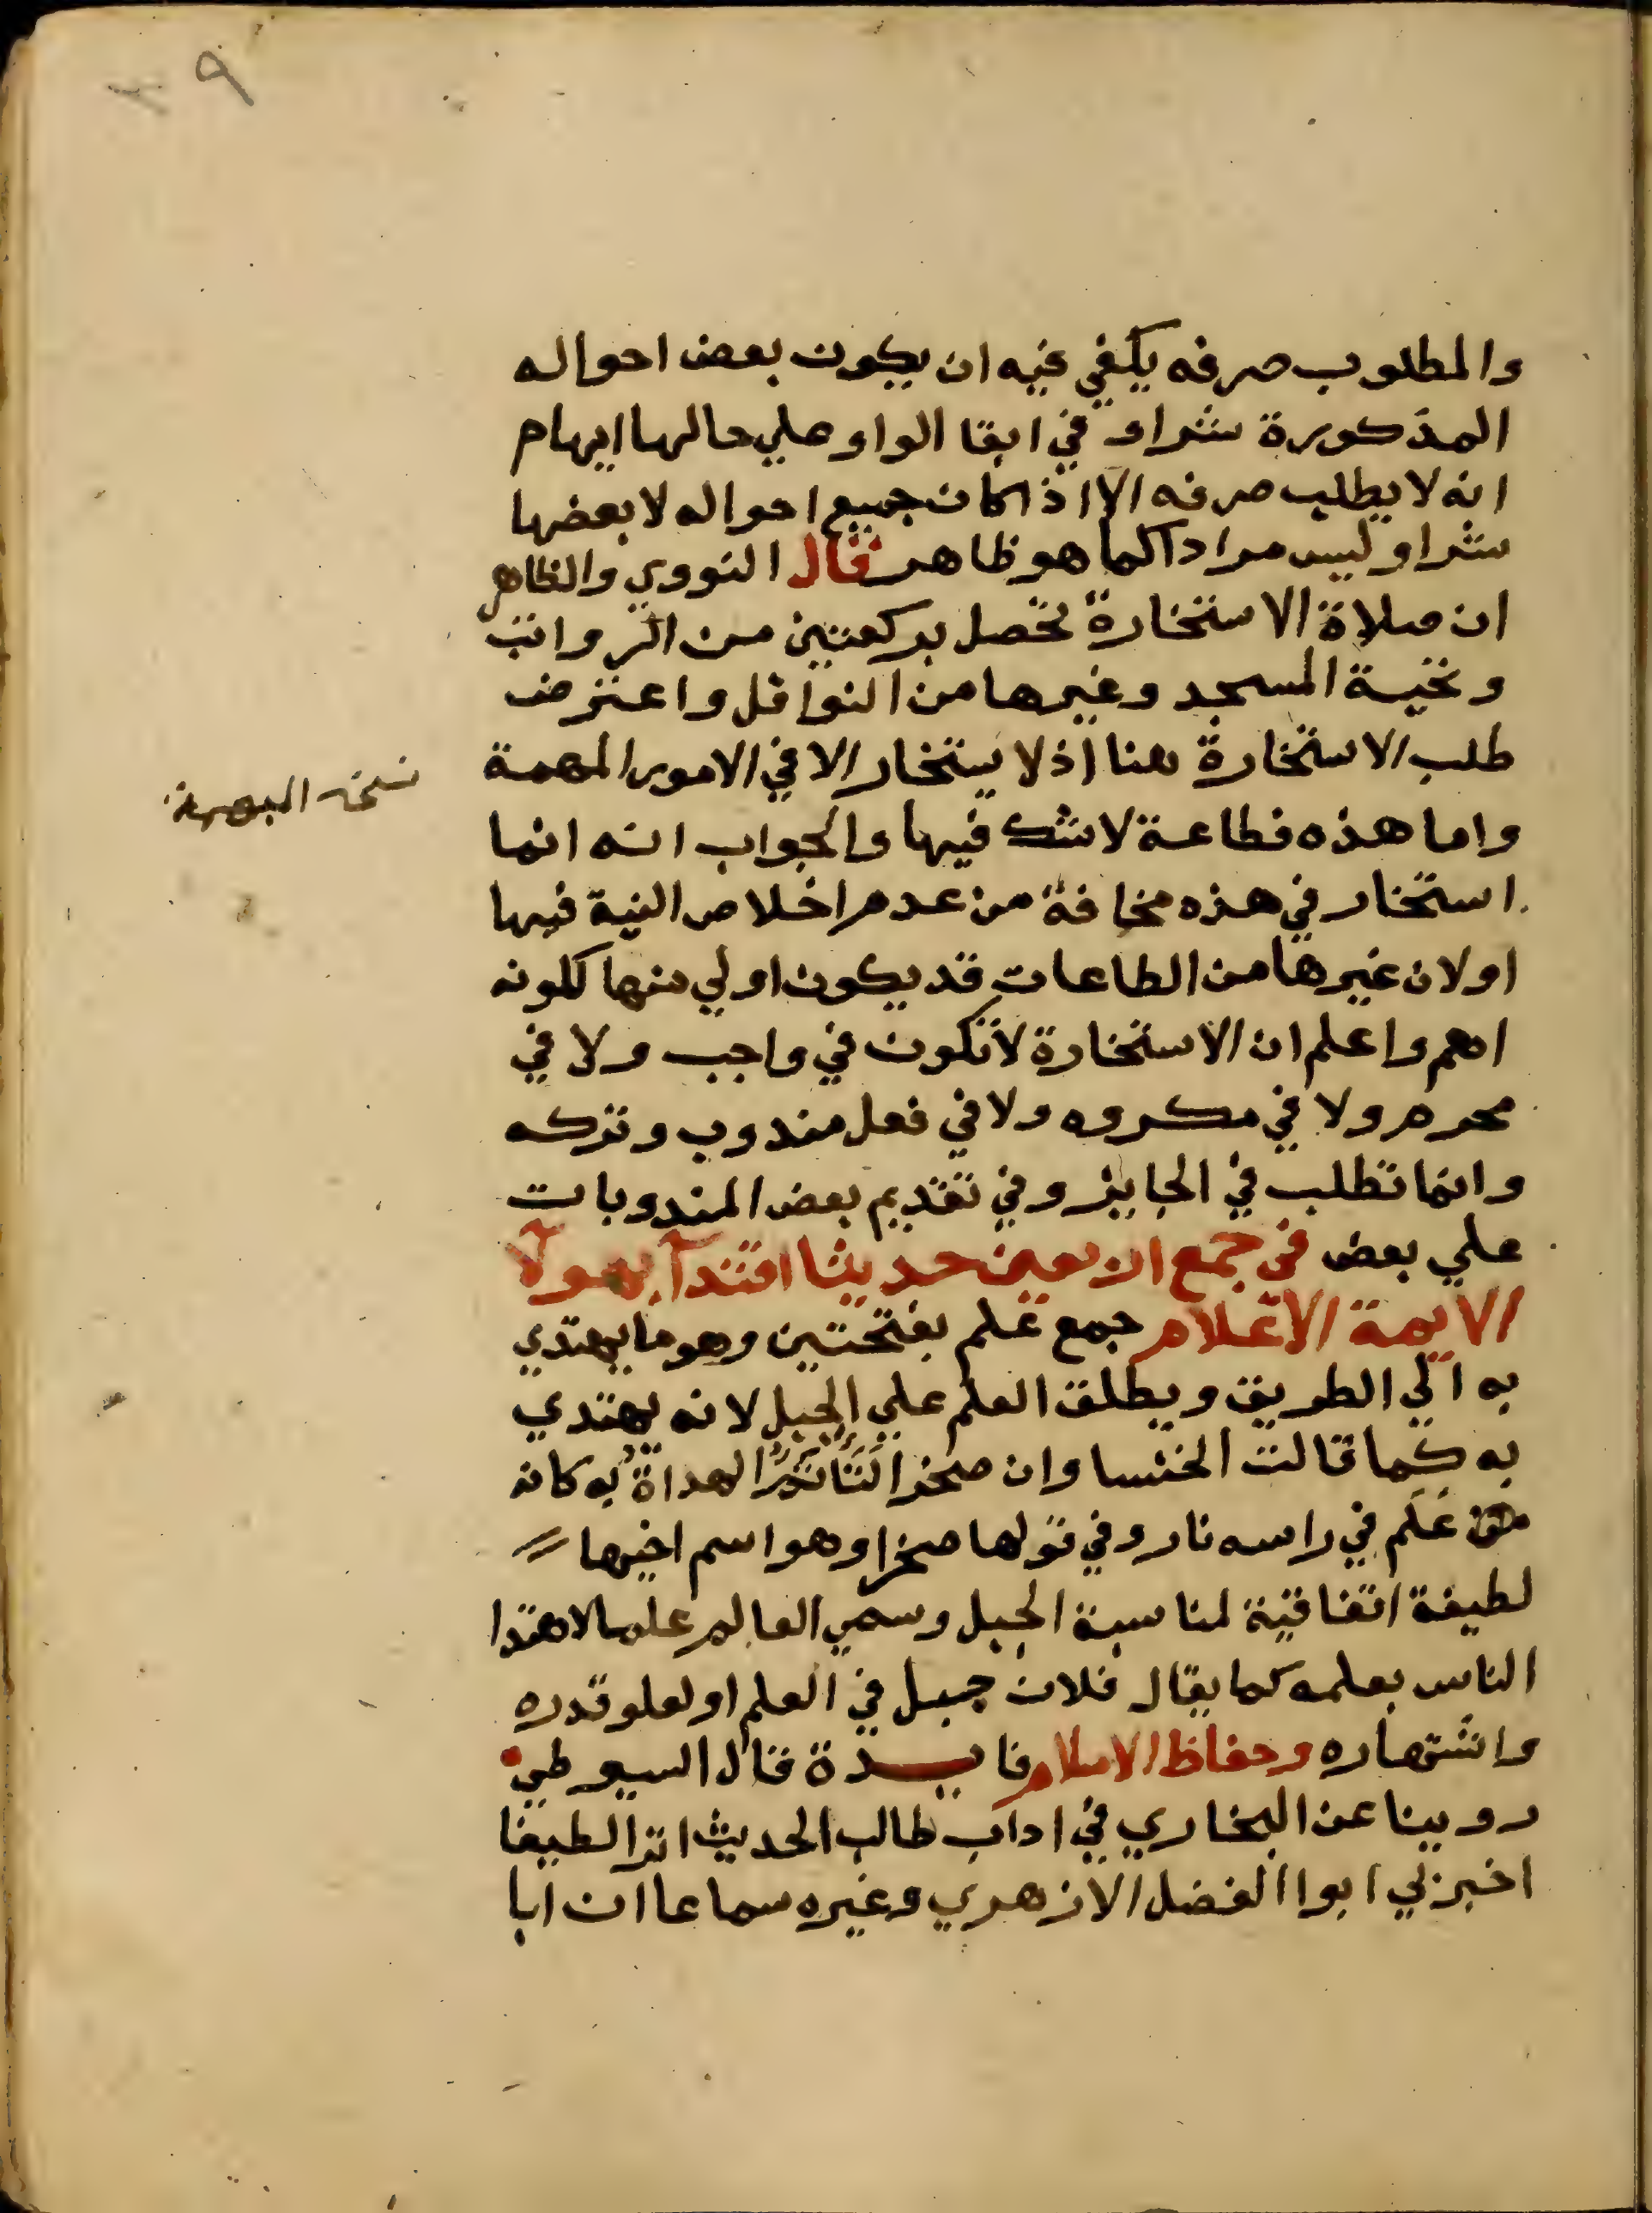 ٣٩
والمطلوب صرفه يكفي فيه ان يكون بعض احواله
المذكورة شرا و في ابقا الواو علي حالها ايهام
انه لا يطلب صرفه الا اذا كان جميع احواله لا بعضها
شرا وليس مرادا كما هو ظاهر قال النووي والظاهر
ان صلاة الاستخارة تحصل بركعتين من الرواتب
وتحية المسجد وغيرها من النوافل واعترض
طلب الاستخارة هنا اذ لا يستخار الا في الامور المهمة
واما هذه فطاعة لا شك فيها والجواب انه انما
استخار في هذه مخافة من عدم اخلاص النية فيها
او لان غيرها من الطاعات قد يكون اولي منها لكونه
اهم واعلم ان الاستخارة لا تكون في واجب ولا في
محرم ولا في مكروه ولا في فعل مندوب وتركه
وانما تطلب في الجايز وفي تقديم بعض المندوبات
علي بعض في جمع اربعين حديثا اقتدآ بهولآ
الايمة الاعلام جمع علم بفتحتين وهو ما يهتدي
به الي الطريق ويطلق العلم علي الجبل لانه يهتدي
به كما قالت الخنسا وان صخرا لتاتم الهداة به كانه
علم في راسه نار وفي قولها صخرا وهو اسم اخيها
لطيفة اتفاقية لمناسبة الجبل وسمي العالم علما لاهتدا
الناس بعلمه كما يقال فلان جبل في العلم او لعلو قدره
واشتهاره وحفاظ الاسلام فايدة قال السيوطي
روينا عن البخاري في اداب طالب الحديث اثرا لطيفا
اخبرني ابوا الفضل الازهري وغيره سماعا ان ابا
نسخة